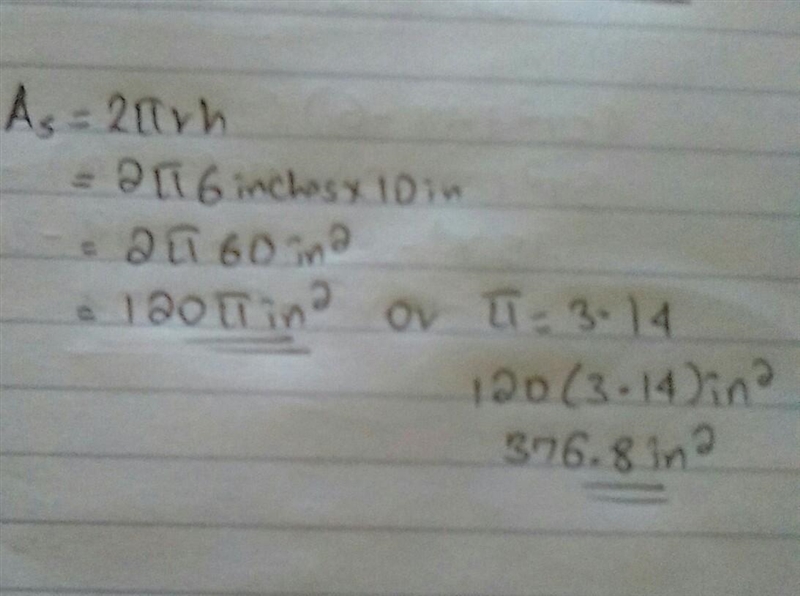 As = 2πrh
= 2π6 inches x 10 in
= 2π 60 in²
= 120π in² or π = 3.14
120(3.14) in²
376.8 in²